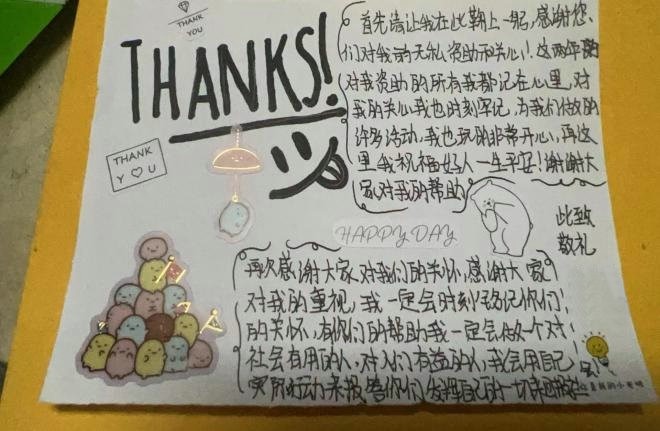 THANK
YOU
THANKS!
THANK
Y♡U
首先请让我在此鞠上一躬,感谢您
们对我的无私资助和关心!这两年
对我资助的所有我都记在心里,对
我的关心我也时刻牢记,为我们做的
许多活动,我也玩的非常开心,再这
里我祝福好人一生平安!谢谢大
家对我的帮助
此致
敬礼
HAPPY DAY
再次感谢大家对我们的关怀,感谢大家
对我的重视,我一定会时刻铭记你们
的关怀,有你们的帮助我一定会做一个对
社会有用的人,对人们有益的人,我会用自己
实际行动来报答你们,发挥自己的一切来